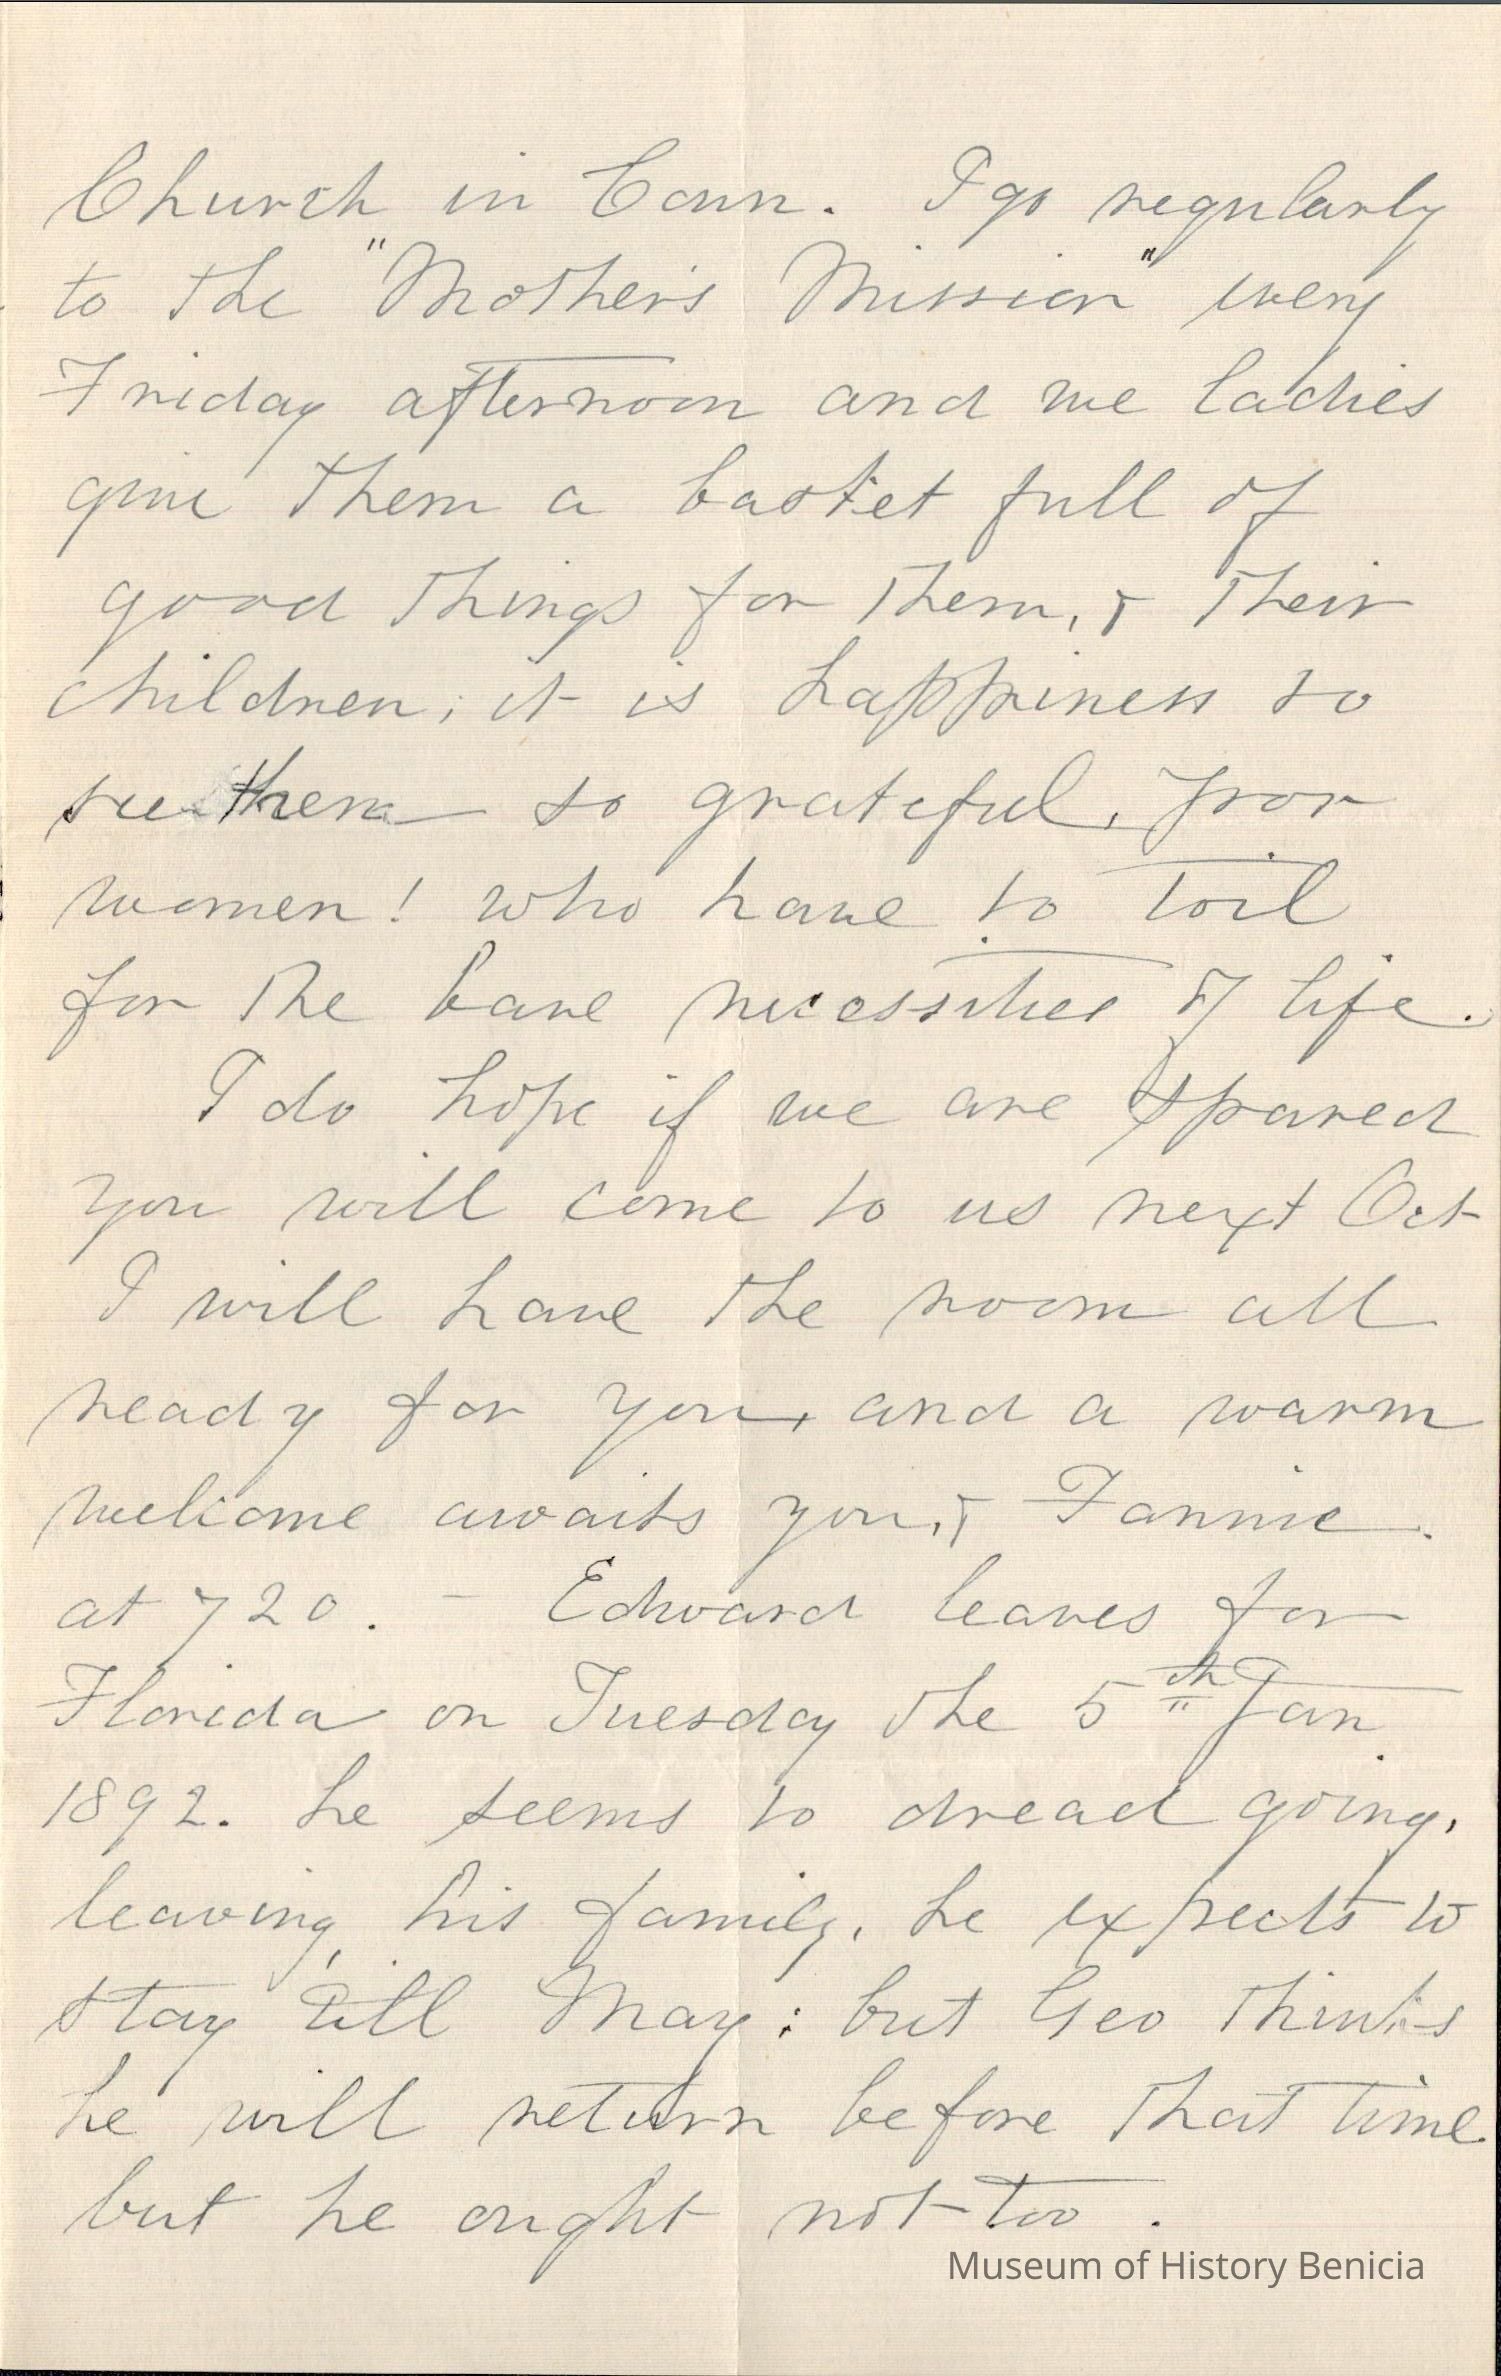 Church in Conn. I go regularly
to the "Mother's Mission" every
Friday afternoon and we ladies
give them a basket full of
good things for them, & their
children; it is happiness to
see them so grateful, poor
women! who have to toil
for the bare necessities of life.
I do hope if we are spared
you will come to us next Oct
I will have the room all
ready for you, and a warm
welcome awaits you, & Fannie.
at 720. - Edward leaves for
Florida on Tuesday the 5th Jan
1892. he seems to dread going,
leaving his family, he expects to
stay till May; but Geo thinks
he will return before that time
but he ought not too.
Museum of History Benicia